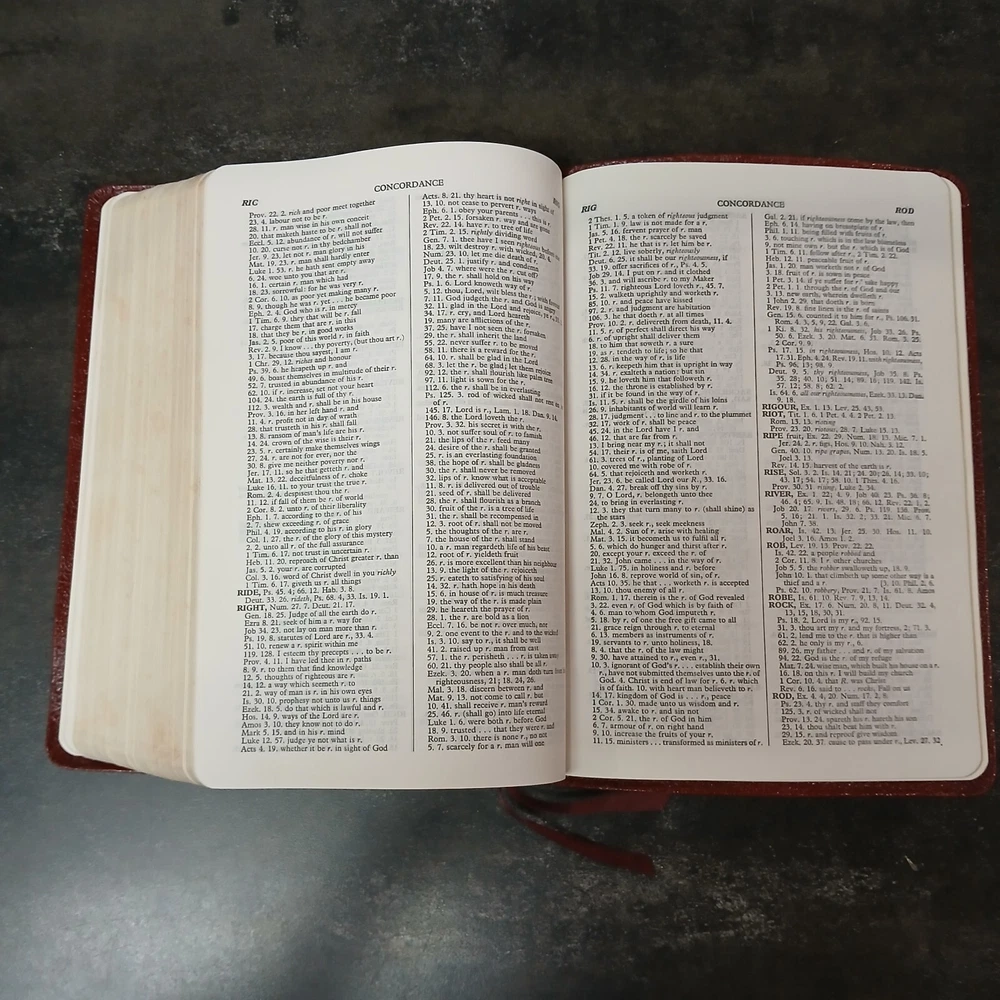 CONCORDANCE
RIC
Prov. 22. 2. rich and poor meet together
23. 4. labour not to be r.
28. 11. r. man wise in his own conceit
20. that maketh haste to be r. shall not
Eccl. 5. 12. abundance of r. will not suffer
10. 20. curse not r. in thy bedchamber
Jer. 9. 23. let not r. man glory in his
Mat. 19. 23. r. man shall hardly enter
Luke 1. 53. r. he hath sent empty away
6. 24. woe unto you that are r.
16. 1. certain r. man which had
18. 23. sorrowful: for he was very r.
2 Cor. 6. 10. as poor yet making many r.
8. 9. though he was r. yet . . . he became poor
Eph. 2. 4. God who is r. in mercy
1 Tim. 6. 9. they that will be r. fall
17. charge them that are r. in this
18. that they be r. in good works
Jas. 2. 5. poor of this world r. in faith
Rev. 2. 9. I know . . . thy poverty, (but thou art r.)
3. 17. because thou sayest, I am r.
1 Chr. 29. 12. riches and honour
Ps. 39. 6. he heapeth up r. and
49. 6. boast themselves in multitude of their r.
52. 7. trusted in abundance of his r.
62. 10. if r. increase, set not your heart
104. 24. the earth is full of thy r.
112. 3. wealth and r. shall be in his house
Prov. 3. 16. in her left hand r. and
11. 4. r. profit not in day of wrath
28. that trusteth in his r. shall fall
13. 8. ransom of man's life are his r.
14. 24. crown of the wise is their r.
23. 5. r. certainly make themselves wings
27. 24. r. are not for ever, nor the
30. 8. give me neither poverty nor r.
Jer. 17. 11. so he that getteth r. and
Mat. 13. 22. deceitfulness of r. choke
Luke 16. 11. to your trust the true r.
Rom. 2. 4. despisest thou the r.
11. 12. if fall of them be r. of world
2 Cor. 8. 2. unto r. of their liberality
Eph. 1. 7. according to the r. of his
2. 7. shew exceeding r. of grace
Phil. 4. 19. according to his r. in glory
Col. 1. 27. the r. of the glory of this mystery
2. 2. unto all r. of the full assurance
1 Tim. 6. 17. not trust in uncertain r.
Heb. 11. 26. reproach of Christ greater r. than
Jas. 5. 2. your r. are corrupted
Col. 3. 16. word of Christ dwell in you richly
1 Tim. 6. 17. giveth us r. all things
RIDE, Ps. 45. 4; 66. 12. Hab. 3. 8.
Deut. 33. 26. rideth, Ps. 68. 4, 33. Is. 19. 1.
RIGHT, Num. 27. 7. Deut. 21. 17.
Gen. 18. 25. Judge of all the earth do r.
Ezra 8. 21. seek of him a r. way for
Job 34. 23. not lay on man more than r.
Ps. 19. 8. statutes of Lord are r., 33. 4.
51. 10. renew a r. spirit within me
119. 128. I esteem thy precepts . . . to be r.
Prov. 4. 11. I have led thee in r. paths
8. 9. r. to them that find knowledge
12. 5. thoughts of righteous are r.
14. 12. a way which seemeth r. to
21. 2. way of man is r. in his own eyes
Is. 30. 10. prophesy not unto us r. things
Ezek. 18. 5. do that which is lawful and r.
Hos. 14. 9. ways of the Lord are r.
Amos 3. 10. they know not to do r.
Mark 5. 15. and in his r. mind
Luke 12. 57. judge ye not what is r.
Acts 4. 19. whether it be r. in sight of God
Acts. 8. 21. thy heart is not right in sight of
13. 10. not cease to pervert r. ways
Eph. 6. 1. obey your parents . . . this is r.
2 Pet. 2. 15. forsaken r. way and are gone
Rev. 22. 14. have r. to tree of life
2 Tim. 2. 15. rightly dividing word
Gen. 7. 1. thee have I seen righteous before
18. 23. wilt destroy r. with wicked, 20. 4.
Num. 23. 10. let me die death of r.
Deut. 25. 1. justify r. and condemn
Job 4. 7. where were the r. cut off?
17. 9. the r. shall hold on his way
Ps. 1. 6. Lord knoweth way of r.
5. 12. thou, Lord, wilt bless the r.; with
7. 11. God judgeth the r. and God is angry
32. 11. glad in the Lord and rejoice, ye r.,
34. 17. r. cry, and Lord heareth
19. many are afflictions of the r.
37. 25. have I not seen the r. forsaken
29. the r. shall inherit the land
55. 22. never suffer r. to be moved
58. 11. there is a reward for the r.
64. 10. r. shall be glad in the Lord
68. 3. let the r. be glad; let them rejoice
92. 12. the r. shall flourish like palm tree
97. 11. light is sown for the r.
112. 6. the r. shall be in everlasting
Ps. 125. 3. rod of wicked shall not rest
of r.
145. 17. Lord is r., Lam. 1. 18. Dan. 9. 14.
146. 8. the Lord loveth the r.
Prov. 3. 32. his secret is with the r.
10. 3. not suffer soul of r. to famish
21. the lips of the r. feed many
24. desire of the r. shall be granted
25. r. is an everlasting foundation
28. the hope of r. shall be gladness
30. the r. shall never be removed
32. lips of r. know what is acceptable
11. 8. r. is delivered out of trouble
21. seed of r. shall be delivered
28. the r. shall flourish as a branch
30. fruit of the r. is a tree of life
31. the r. shall be recompensed in
12. 3. root of r. shall not be moved
5. the thoughts of the r. are
7. the house of the r. shall stand
10. a r. man regardeth life of his beast
12. root of r. yieldeth fruit
26. r. is more excellent than his neighbour
13. 9. the light of the r. rejoiceth
25. r. eateth to satisfying of his soul
14. 32. r. hath hope in his death
15. 6. in house of r. is much treasure
19. the way of the r. is made plain
29. he heareth the prayer of r.
28. 1. the r. are bold as a lion
Eccl. 7. 16. be not r. over much, are
9. 2. one event to the r. and to the wicked
Is. 3. 10. say to r., it shall be well
41. 2. raised up r. man from east
57. 1. the r. perisheth . . . r. is taken away
60. 21. thy people also shall be all r.
Ezek. 3. 20. when a r. man doth turn from
righteousness, 21; 18. 24, 26.
Mal. 3. 18. discern between r. and
Mat. 9. 13. not come to call r. but
10. 41. shall receive r. man's reward
25. 46. r. (shall go) into life eternal
Luke 1. 6. were both r. before God
18. 9. trusted . . . that they were r. and
Rom. 3. 10. there is none r., no not
5. 7. scarcely for a r. man will one
RIG
CONCORDANCE
ROD
2 Thes. 1. 5. a token of righteous judgment
1 Tim. 1. 9. law is not made for a r.
Jas. 5. 16. fervent prayer of r. man
1 Pet. 4. 18. the r. scarcely be saved
Rev. 22. 11. he that is r. let him be r.
Tit. 2. 12. live soberly, righteously
Deut. 6. 25. it shall be our righteousness, if
33. 19. offer sacrifices of r., Ps. 4. 5.
Job 29. 14. I put on r. and it clothed
36. 3. and will ascribe r. to my Maker
Ps. 11. 7. righteous Lord loveth r., 45. 7.
15. 2. walketh uprightly and worketh r.
85. 10. r. and peace have kissed
97. 2. r. and judgment are habitation
106. 3. he that doeth r. at all times
Prov. 10. 2. r. delivereth from death, 11. 4.
11. 5. r. of perfect shall direct his way
6. r. of upright shall deliver them
18. to him that soweth r. a sure
19. as r. tendeth to life; so he that
12. 28. in the way of r. is life
13. 6. r. keepeth him that is upright in way
14. 34. r. exalteth a nation: but sin
15. 9. he loveth him that followeth r.
16. 12. the throne is established by r.
31. if it be found in the way of r.
Is. 11. 5. r. shall be the girdle of his loins
26. 9. inhabitants of world will learn r.
28. 17. judgment . . . to line and r. to the plummet
32. 17. work of r. shall be peace
45. 24. in the Lord have I r. and
46. 12. that are far from r.
13. I bring near my r.; it shall not
54. 17. their r. is of me, saith Lord
61. 3. trees of r., planting of Lord
10. covered me with robe of r.
64. 5. that rejoiceth and worketh r.
Jer. 23. 6. be called Lord our R., 33. 16.
Dan. 4. 27. break off thy sins by r.
9. 7. O Lord, r. belongeth unto thee
24. to bring in everlasting r.
12. 3. they that turn many to r. (shall shine) as
the stars
Zeph. 2. 3. seek r., seek meekness
Mal. 4. 2. Sun of r. arise with healing
Mat. 3. 15. it becometh us to fulfil all r.
5. 6. which do hunger and thirst after r.
20. except your r. exceed the r. of
21. 32. John came . . . in the way of r.
Luke 1. 75. in holiness and r. before
John 16. 8. reprove world of sin, of r.
Acts 10. 35. he that . . . worketh r. is accepted
13. 10. thou enemy of all r.
Rom. 1. 17. therein is the r. of God revealed
3. 22. even r. of God which is by faith of
4. 6. man to whom God imputeth r.
5. 18. by r. of one the free gift came to all
21. grace reign through r. to eternal
6. 13. members as instruments of r.
19. servants to r. unto holiness, 18.
8. 4. that the r. of the law might
9. 30. have attained to r., even r., 31.
10. 3. ignorant of God's r. . . . establish their own
r., have not submitted themselves unto the r. of
God. 4. Christ is end of law for r. 6. r. which
is of faith. 10. with heart man believeth to r.
14. 17. kingdom of God is . . . r., peace
1 Cor. 1. 30. made unto us wisdom and r.
15. 34. awake to r. and sin not
2 Cor. 5. 21. the r. of God in him
6. 7. armour of r. on right hand
9. 10. increase the fruits of your r.
11. 15. ministers . . . transformed as ministers of r.
Gal. 2. 21. if righteousness come by the law, then
Eph. 6. 14. having on breastplate of r.
Phil. 1. 11. being filled with fruits of r.
3. 6. touching r. which is in the law blameless
9. not mine own r. but the r. which is of God
1 Tim. 6. 11. follow after r., 2 Tim. 2. 22.
Heb. 12. 11. peaceable fruit of r.
Jas. 1. 20. man worketh not r. of God
3. 18. fruit of r. is sown in peace
1 Pet. 3. 14. if ye suffer for r.' sake happy
2 Pet. 1. 1. through the r. of God and our
3. 13. new earth, wherein dwelleth r.
1 John 2. 29. that doeth r. is born
Rev. 19. 8. fine linen is the r. of saints
Gen. 15. 6. counted it to him for r., Ps. 106. 31.
Rom. 4. 3, 5, 9, 22. Gal. 3. 6.
1 Ki. 8. 32. his righteousness, Job 33. 26. Ps.
2 Cor. 9. 9.
Ps. 17. 15. in righteousness, Hos. 10. 12. Acts
17. 31. Eph. 4. 24. Rev. 19. 11. with righteousness,
Ps. 96. 13; 98. 9.
Deut. 9. 5. thy righteousness, Job 35. 8. Ps.
57. 12; 58. 8; 62. 2.
Is. 64. 6. all our righteousness, Ezek. 33. 13. Dan.
9. 18.
RIGOUR, Ex. 1. 13. Lev. 25. 43, 53.
RIOT, Tit. 1. 6. 1 Pet. 4. 4. 2 Pet. 2. 13.
Rom. 13. 13. rioting
Prov. 23. 20. riotous, 28. 7. Luke 15. 13.
RIPE fruit, Ex. 22. 29. Num. 18. 13. Mic. 7. 1.
Jer. 24. 2. r. figs, Hos. 9. 10. Nah. 3. 12.
Gen. 40. 10. ripe grapes, Num. 13. 20. Is. 18. 5.
Joel 3. 13.
Rev. 14. 15. harvest of the earth is r.
RISE, Sel. 3. 2. Is. 14. 21; 24. 20; 26. 14; 33. 10;
43. 17; 54. 17; 58. 10. 1 Thes. 4. 16.
Prov. 30. 31. rising, Luke 2. 34.
RIVER, Ex. 1. 22; 4. 9. Job 40. 23. Ps. 36. 8;
46. 4; 65. 9. Is. 48. 18; 66. 12. Rev. 22. 1, 2.
Job 20. 17. rivers, 29. 6. Ps. 119. 136. Prov.
5. 16; 21. 1. Is. 32. 2; 33. 21. Mic. 6. 7.
John 7. 38.
ROAR, Is. 42. 13. Jer. 25. 30. Hos. 11. 10.
Joel 3. 16. Amos 1. 2.
ROB, Lev. 19. 13. Prov. 22. 22.
Is. 42. 22. a people robbed and
2 Cor. 11. 8. I r. other churches
Job 5. 5. the robber swalloweth up, 18. 9.
John 10. 1. that climbeth up some other way is a
thief and a r.
Ps. 62. 10. robbery, Prov. 21. 7. Is. 61. 8. Amos
ROBE, Is. 61. 10. Rev. 7. 9, 13, 14.
ROCK, Ex. 17. 6. Num. 20. 8, 11. Deut. 32. 4,
13, 15, 18, 30, 31.
Ps. 18. 2. Lord is my r., 92. 15.
31. 3. thou art my r. and my fortress, 2; 71. 3.
61. 2. lead me to the r. that is higher than
62. 2. he only is my r., 6.
89. 26. my father . . . and r. of my salvation
94. 22. God is the r. of my refuge
Mat. 7. 24. wise man, which built his house on a r.
16. 18. on this r. I will build my church
1 Cor. 10. 4. that R. was Christ
Rev. 6. 16. said to . . . rocks, Fall on us
ROD, Ex. 4. 4, 20. Num. 17. 2, 8.
Ps. 23. 4. thy r. and staff they comfort
125. 3. r. of wicked shall not
Prov. 13. 24. spareth his r. hateth his son
23. 13. thou beatest him with the r.
29. 15. r. and reproof give wisdom
Ezek. 20. 37. cause to pass under r., Lev. 27. 32.